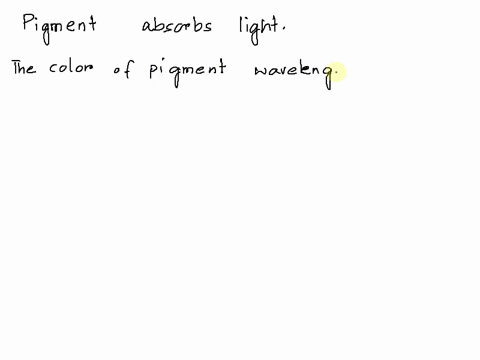 Pigment absorbs light.
The color of pigment waveleng.